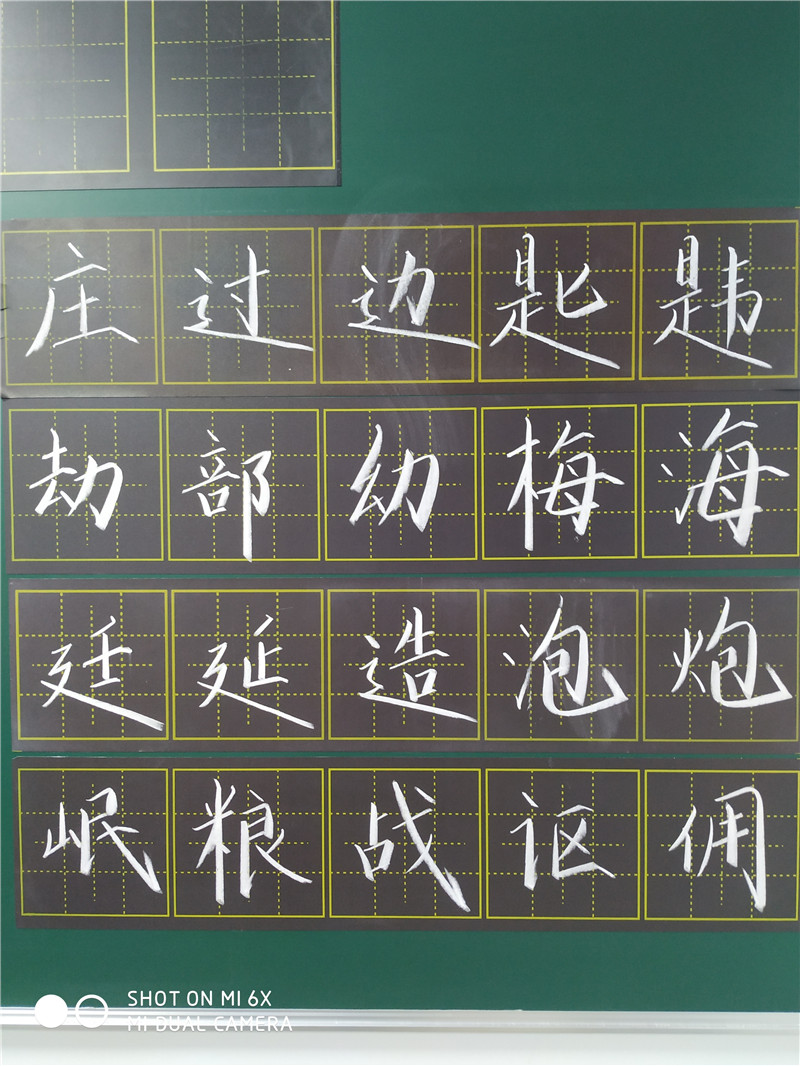 庄过边匙韪
劫部幼梅海
廷延造泡炮
岷粮战讴佣
SHOT ON MI 6X
MI DUAL CAMERA